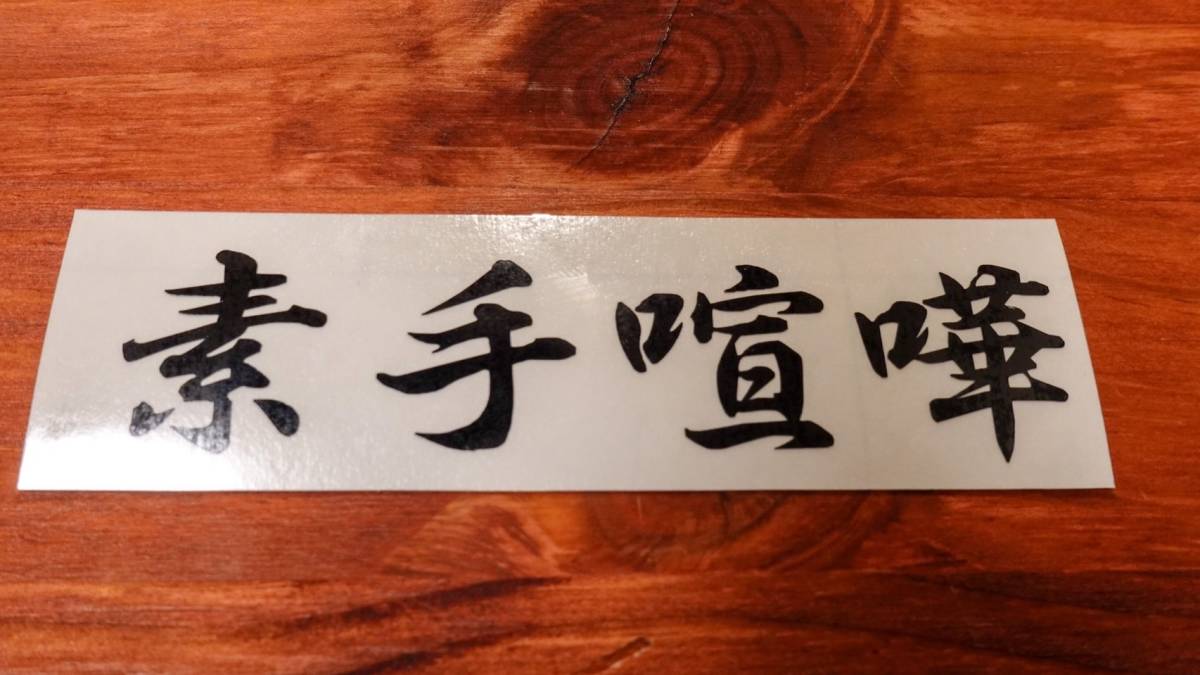 素手喧嘩